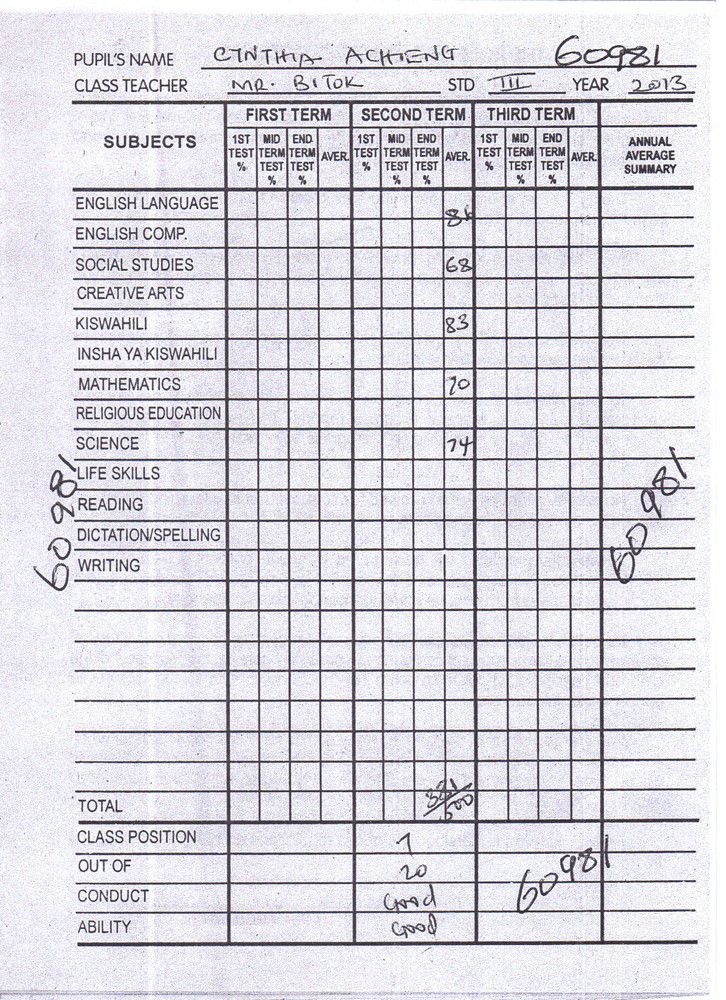 PUPIL'S NAME CYNTHIA ACHIENG 60981
CLASS TEACHER MR. BITOK STD III YEAR 2013
SUBJECTS FIRST TERM SECOND TERM THIRD TERM ANNUAL AVERAGE SUMMARY
1ST TEST % MID TERM TEST % END TERM TEST % AVER. 1ST TEST % MID TERM TEST % END TERM TEST % AVER. 1ST TEST % MID TERM TEST % END TERM TEST % AVER.
ENGLISH LANGUAGE
ENGLISH COMP.
SOCIAL STUDIES 68
CREATIVE ARTS
KISWAHILI 83
INSHA YA KISWAHILI
MATHEMATICS 70
RELIGIOUS EDUCATION
SCIENCE 74
LIFE SKILLS
60981
READING
60981
DICTATION/SPELLING
WRITING
TOTAL
CLASS POSITION 7
OUT OF 20 60981
CONDUCT Good
ABILITY Good